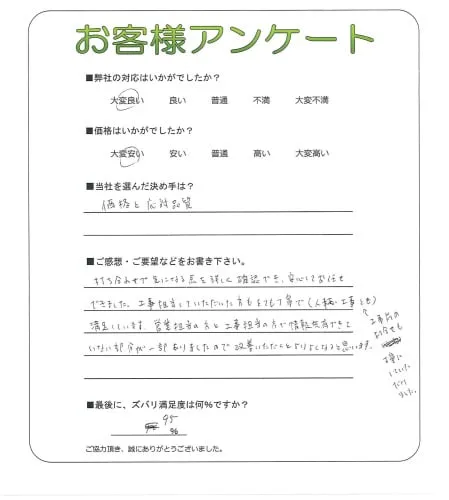 お客様アンケート
■弊社の対応はいかがでしたか？
大変良い 良い 普通 不満 大変不満
■価格はいかがでしたか？
大変安い 安い 普通 高い 大変高い
■当社を選んだ決め手は？
価格と応対品質
■ご感想・ご要望などをお書き下さい。
打ち合わせで気になる点を詳しく確認でき、安心してお任せ
できました。工事担当していただいた方もとても丁寧で(人柄・工事とも)
満足しています。営業担当の方と工事担当の方が情報共有できて
いない部分が一部ありましたので改善いただくとよりよくなると思います。
工事前の
お伝えも
丁寧に
していた
だけ
ました。
■最後に、ズバリ満足度は何%ですか？
95
%
ご協力頂き、誠にありがとうございました。